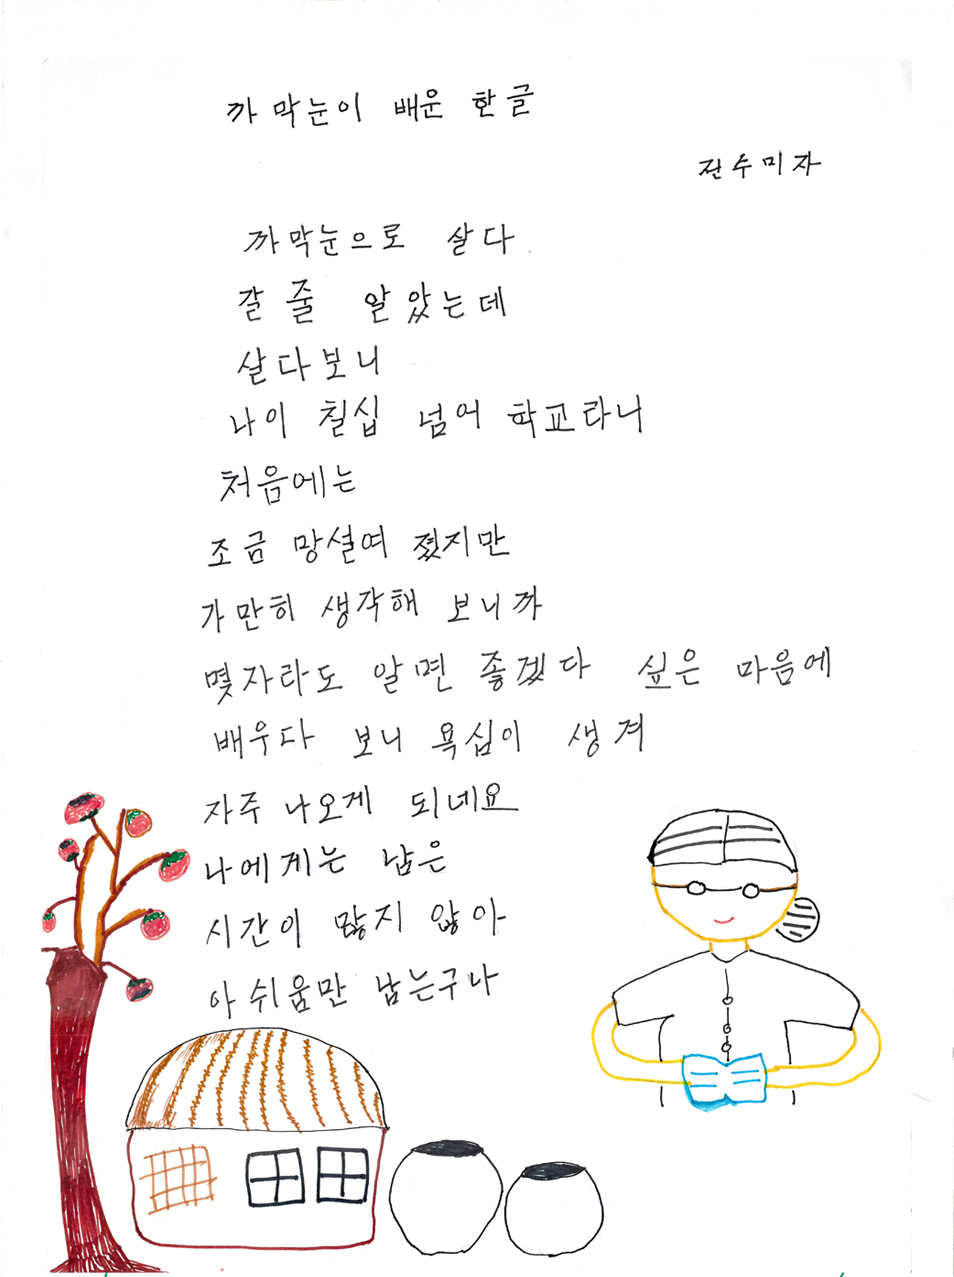 까막눈이 배운 한글
전수미자
까막눈으로 살다
갈 줄 알았는데
살다보니
나이 칠십 넘어 학교라니
처음에는
조금 망설여 졌지만
가만히 생각해 보니까
몇자라도 알면 좋겠다 싶은 마음에
배우다 보니 욕심이 생겨
자주 나오게 되네요
나에게는 남은
시간이 많지 않아
아쉬움만 남는구나